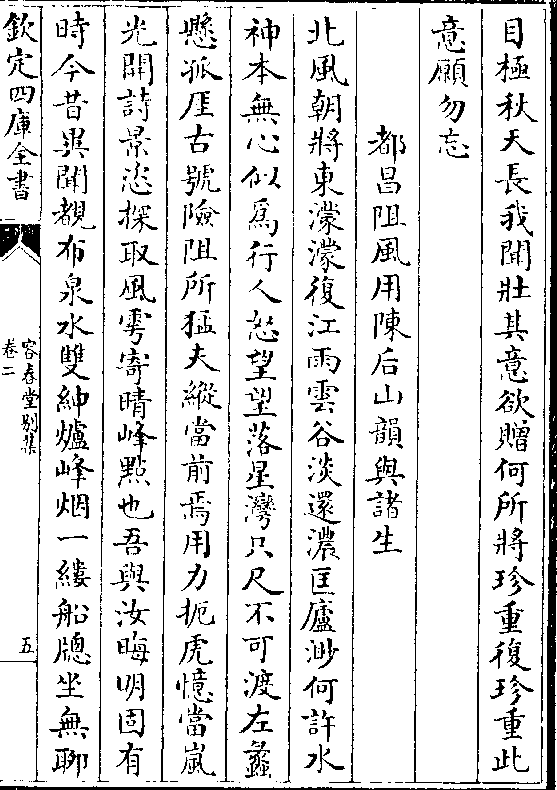 目極秋天長我聞壯其意欲贈何所將珍重復珍重此
意願勿忘
都昌阻風用陳后山韻與諸生
北風朝將東濛濛復江雨雲谷淡還濃匡廬渺何許水
神本無心似爲行人怒望望落星灣只尺不可渡左蠡
懸孤厓古號險阻所猛夫縱當前焉用力扼虎憶當嵐
光開詩景恣探取風雩寄晴峰㸃也吾與汝晦明固有
時今昔異聞覩布泉水雙紳爐峰烟一縷船牕坐無聊
欽定四庫全書
容春堂别集
卷二
五